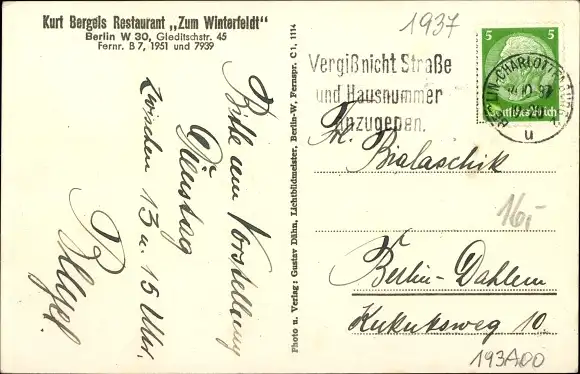 Kurt Bergels Restaurant „Zum Winterfeldt"
Berlin W 30, Gleditschstr. 45
Fernr. B 7, 1951 und 7939
Bitte um Vorstellung
Dienstag
zwischen 13 u. 15 Uhr.
Photo u. Verlag: Gustav Dähn, Lichtbildmeister, Berlin-W, Fernspr. C 1, 1114
1937
Vergißnicht Straße
und Hausnummer
anzugeben.
5 5
Deutsches Reich
BERLIN-CHARLOTTENBURG
u
Fr. Bialaschik
16,-
Berlin-Dahlem
Kukuksweg 10.
193A00